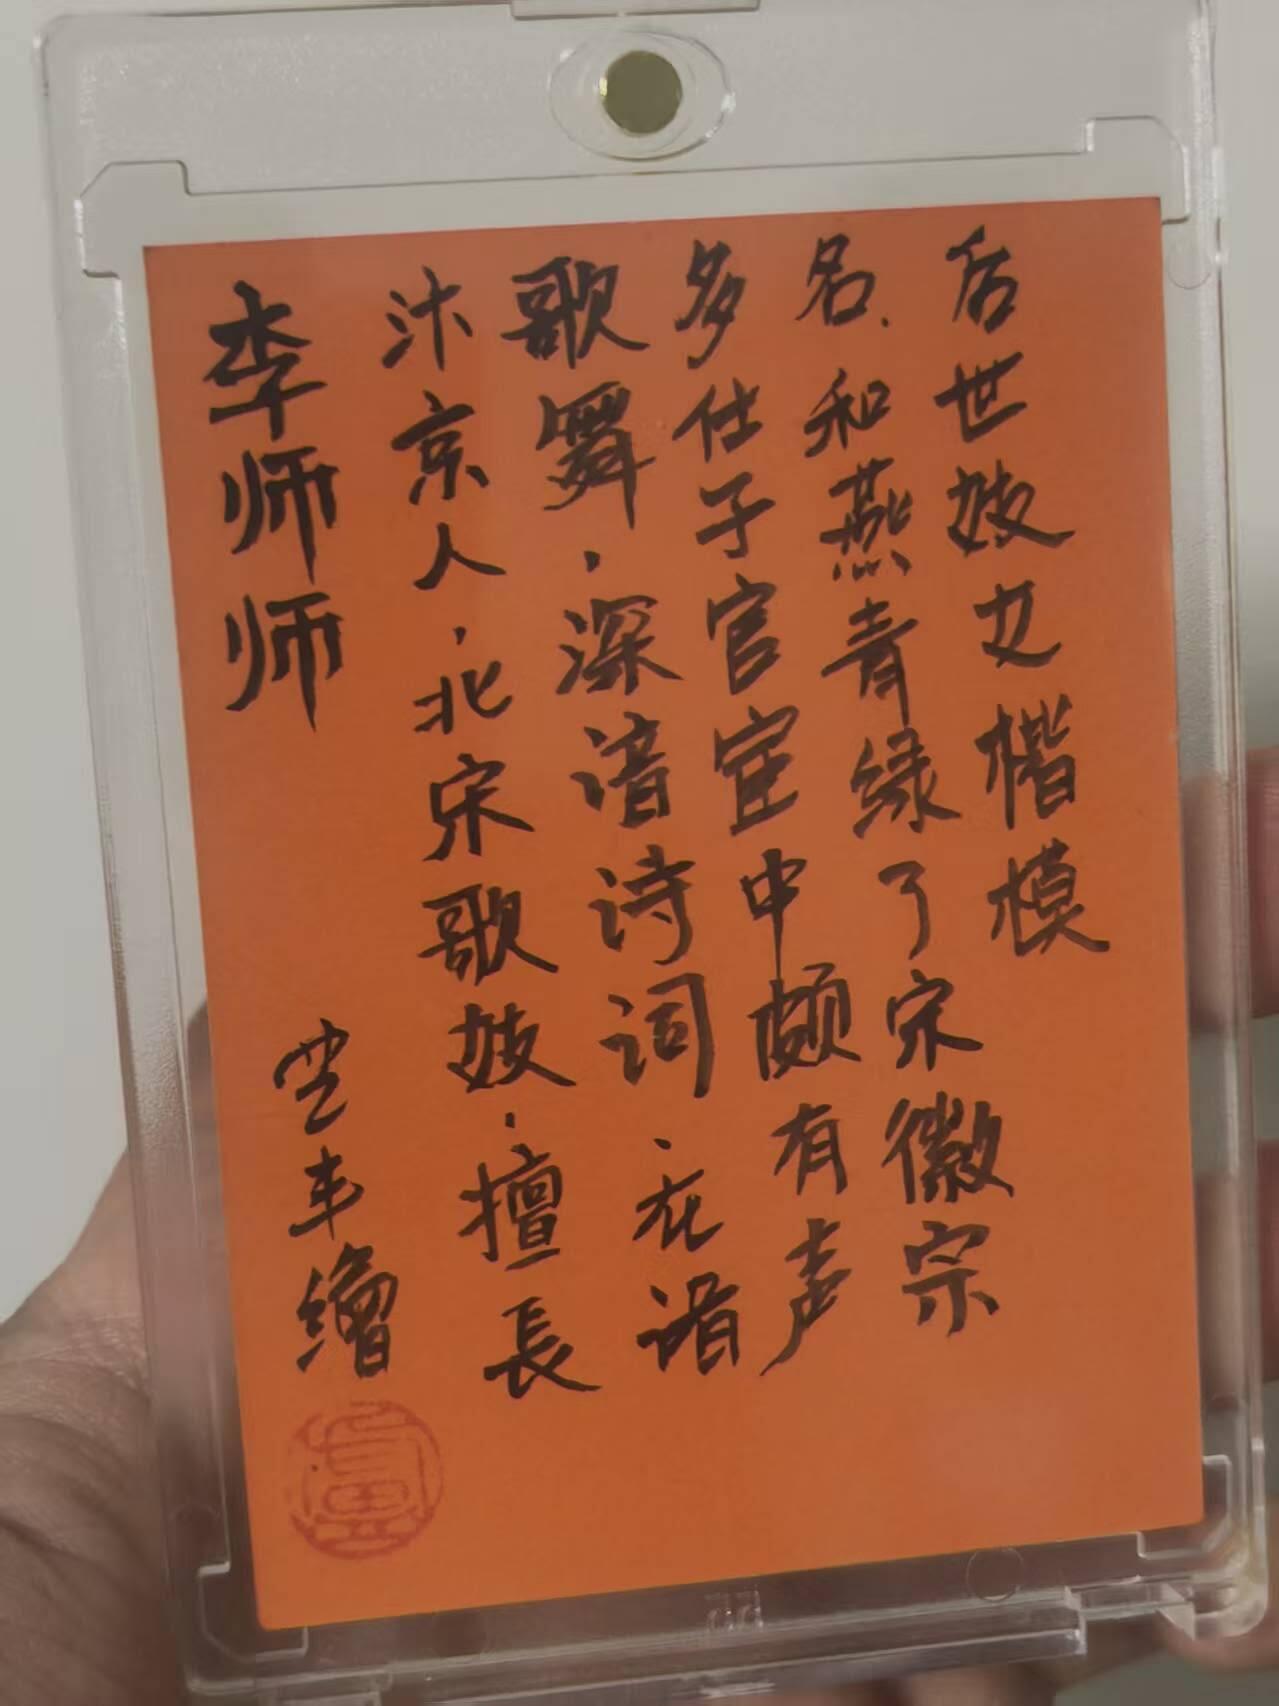 李师师
汴京人，北宋歌妓，擅長
歌舞，深谙诗词，在诸
多仕子官宦中颇有声
名，和燕青绿了宋徽宗
后世妓之楷模